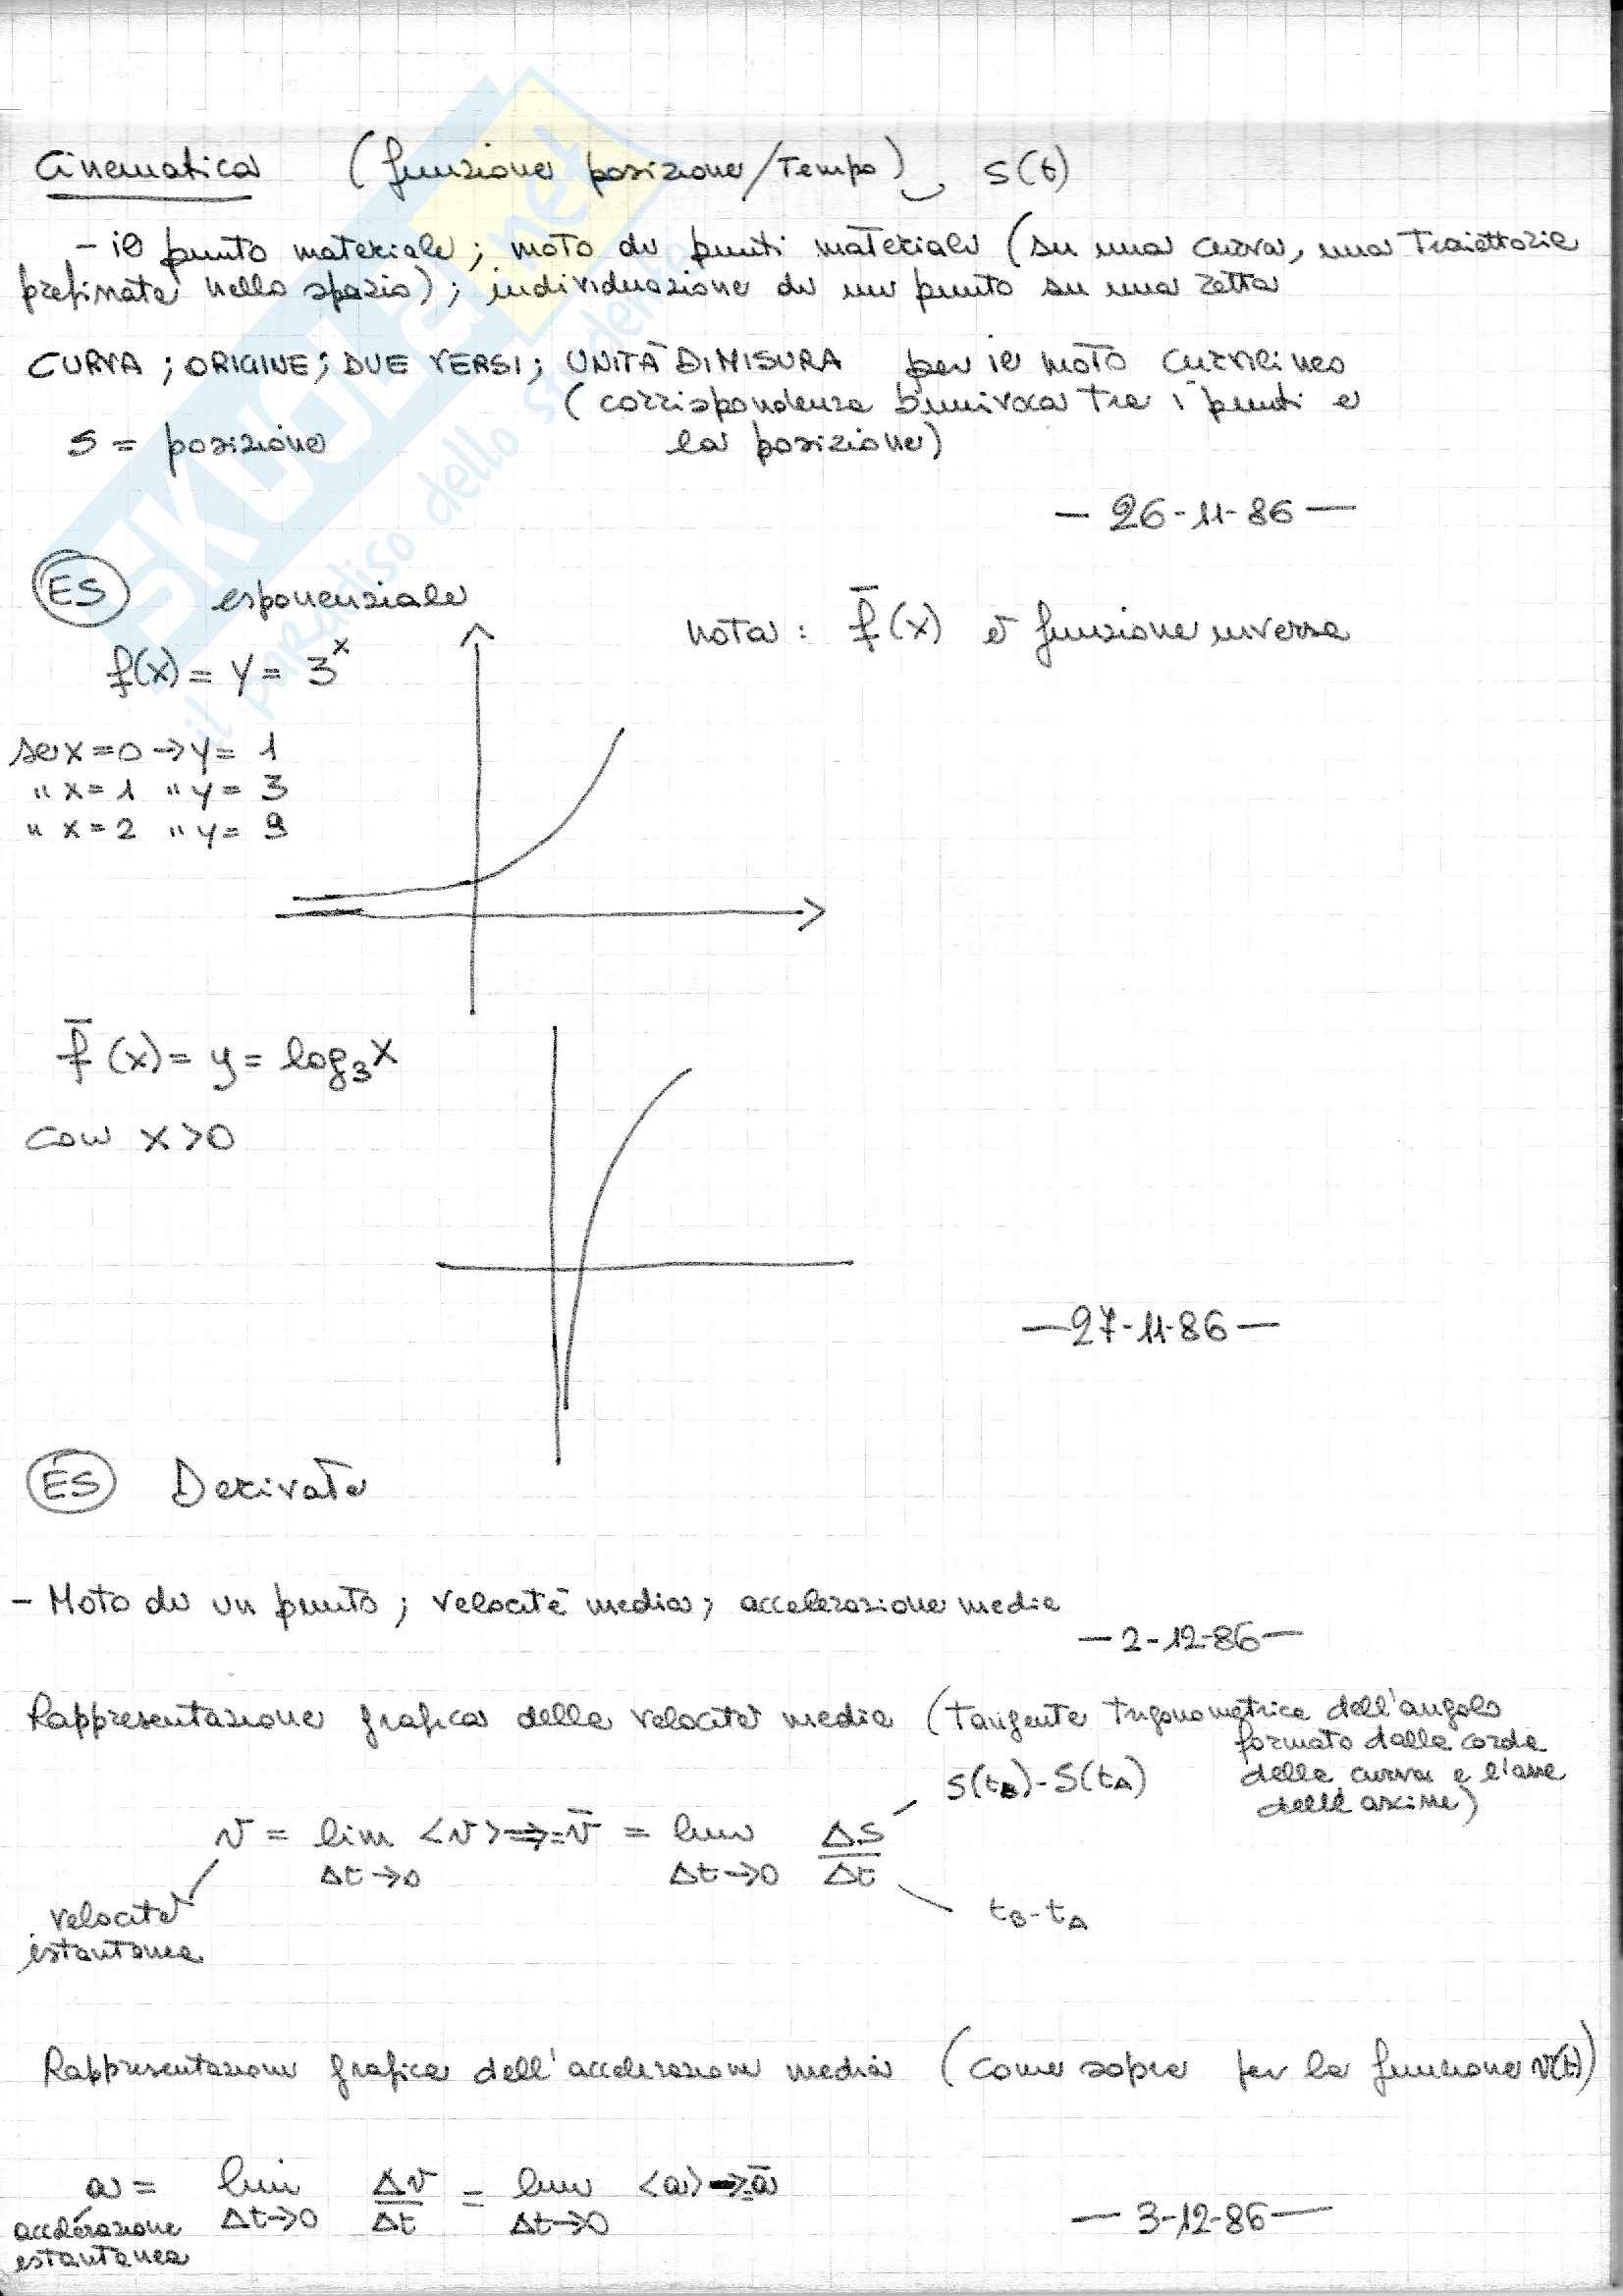 Cinematica (funzione posizione/Tempo) S(t)
- il punto materiale; moto di punti materiali (su una curva, una Traiettoria
prefissata nello spazio); individuazione di un punto su una retta
CURVA; ORIGINE; DUE VERSI; UNITÀ DI MISURA per il moto curvilineo
(corrispondenza biunivoca tra i punti e
S = posizione la posizione)
- 26-11-86 -
ES esponenziale
nota: f̄(x) è funzione inversa
f(x) = y = 3^x
se x=0 → y= 1
" x=1 " y= 3
" x=2 " y= 9
f̄(x) = y = log₃x
con x>0
- 27-11-86 -
ES Derivate
- Moto di un punto; velocità media; accelerazione media
- 2-12-86 -
Rappresentazione grafica della velocità media (Tangente Trigonometrica dell'angolo
formato dalla corda
della curva e l'asse
delle ascisse)
S(tB)-S(tA)
v = lim <v> ⇒ = v̄ = lim ΔS
Δt→0 Δt→0 Δt
tB-tA
velocità
istantanea
Rappresentazione grafica dell'accelerazione media (come sopra per la funzione v(t))
a = lim Δv = lim <a> → = ā
Δt→0 Δt Δt→0
accelerazione
istantanea
- 3-12-86 -
SKUOLA.net
il paradiso dello studente